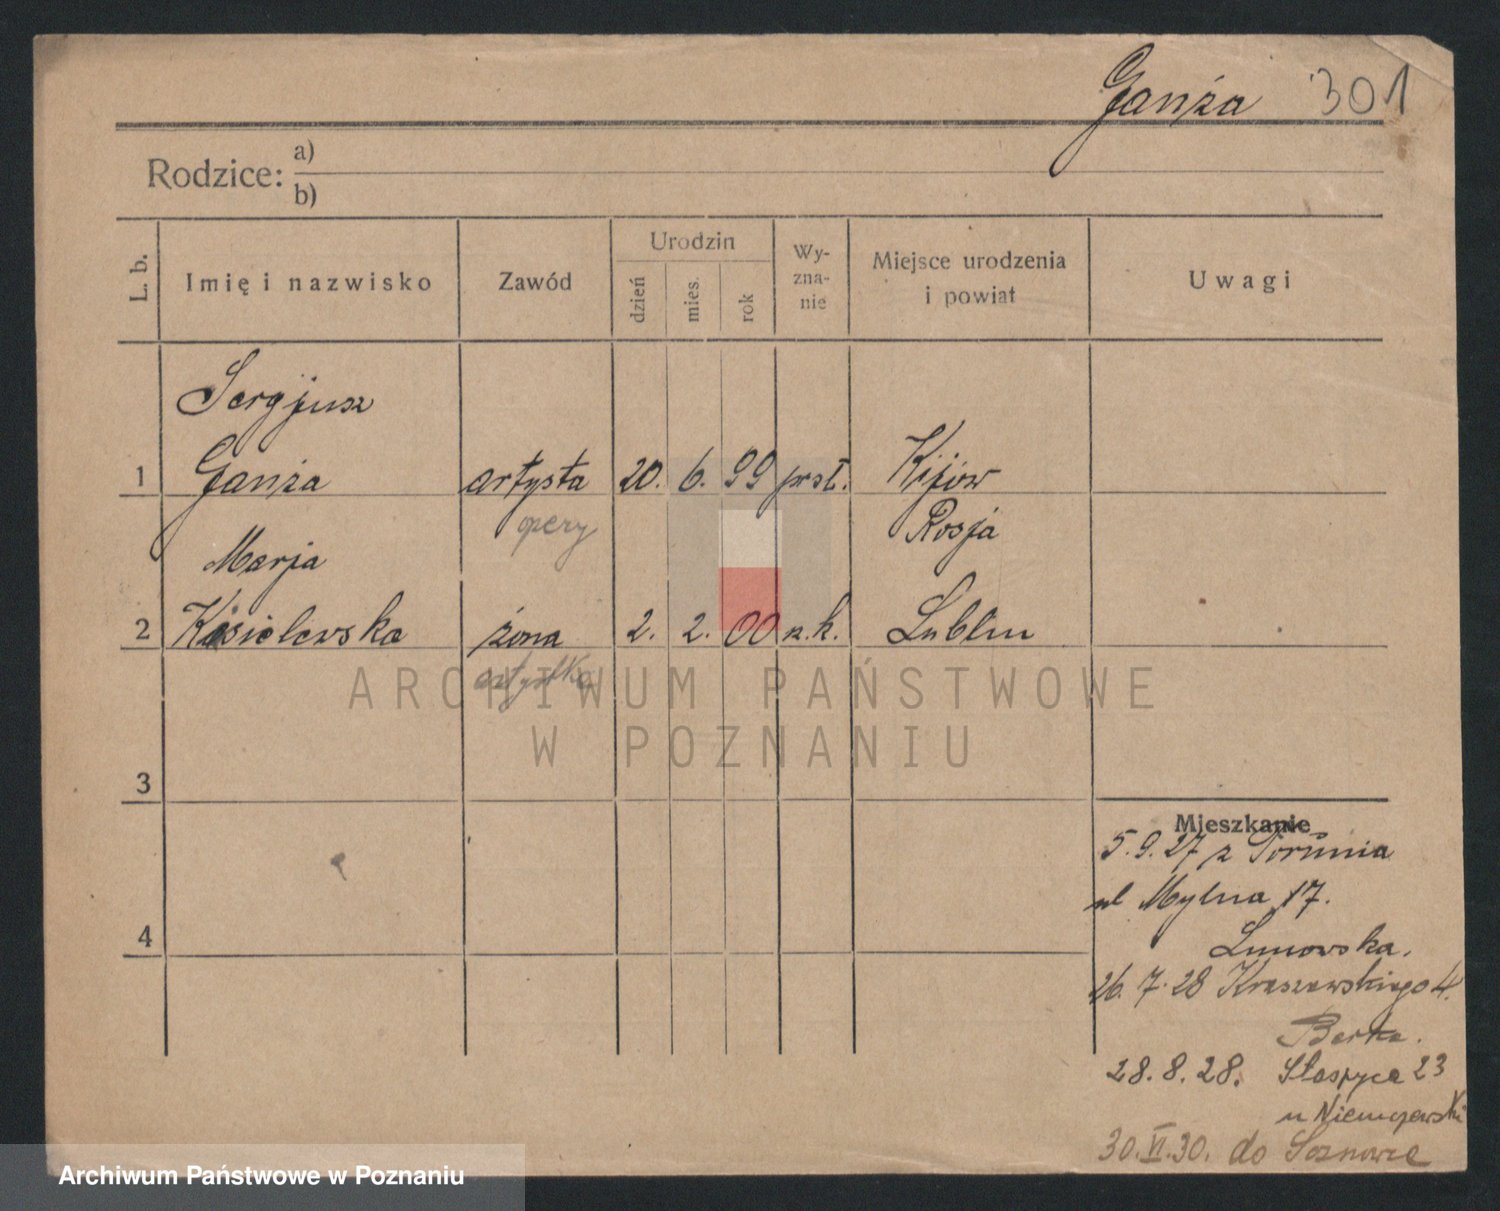 Ganża 301
Rodzice: a)
b)
L. b. Imię i nazwisko Zawód Urodzin dzień mies. rok Wy-zna-nie Miejsce urodzenia i powiat Uwagi
Sergjusz
1 Ganża artysta 20. 6. 99 prst. Kijów
opery Rosja
Marja
2 Kisielewska żona 2. 2. 00 r.k. Lublin
artystka
ARCHIWUM PAŃSTWOWE
W POZNANIU
3
Mieszkanie
5.9.27 z Torunia
ul Mylna 17.
4
26.7.28 Kraszewskiego 4.
28.8.28. 23
u Niemojewski
30.VI.30. do
Archiwum Państwowe w Poznaniu